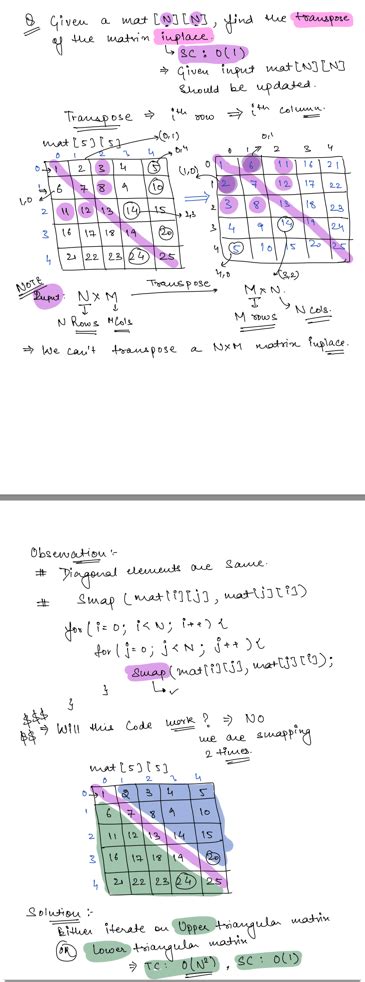 Q Given a mat[N][N], find the transpose
of the matrix inplace.
↳ SC: O(1)
⇒ Given input mat[N][N]
should be updated.
Transpose ⇒ ith row ⇒ ith column.
mat[5][5]
0 1 2 3 4
0 1 2 3 4 5
1 6 7 8 9 10
2 11 12 13 14 15
3 16 17 18 19 20
4 21 22 23 24 25
(0,1)
0,4
1,0
2,3
⇒
0,1
0 1 2 3 4
0 1 6 11 16 21
1 2 7 12 17 22
2 3 8 13 18 23
3 4 9 14 19 24
4 5 10 15 20 25
(1,0)
4,0
(3,2)
NOTE
Input: N x M → Transpose M x N.
N Rows M Cols M rows N cols.
⇒ We can't transpose a NxM matrix inplace.
Observation :-
# Diagonal elements are same.
# Swap (mat[i][j], mat[j][i])
for(i=0; i<N; i++) {
for(j=0; j<N; j++) {
Swap(mat[i][j], mat[j][i]);
}
}
$$$
$$ ⇒ Will this code work? ⇒ NO
we are swapping
2 times.
mat[5][5]
0 1 2 3 4
0 1 2 3 4 5
1 6 7 8 9 10
2 11 12 13 14 15
3 16 17 18 19 20
4 21 22 23 24 25
Solution :-
Either iterate on Upper triangular matrix
OR Lower triangular matrix
⇒ TC: O(N²), SC: O(1)